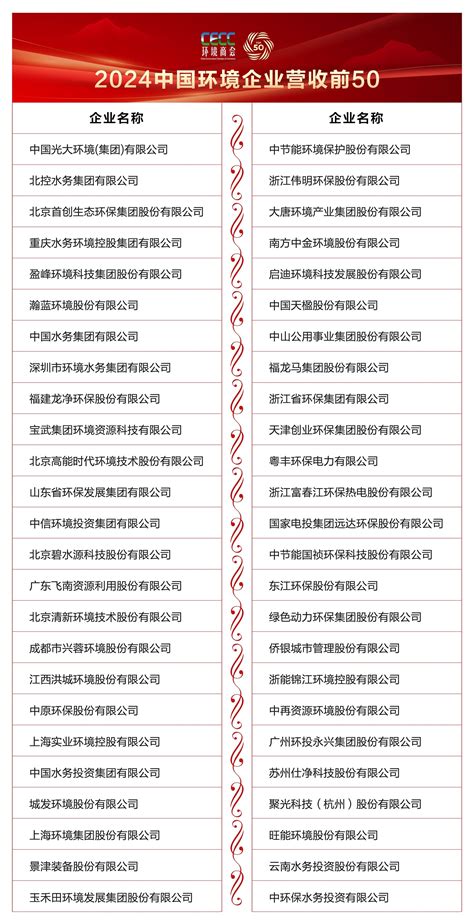 CECC
环境商会
50
2024中国环境企业营收前50
企业名称
中国光大环境(集团)有限公司
北控水务集团有限公司
北京首创生态环保集团股份有限公司
重庆水务环境控股集团有限公司
盈峰环境科技集团股份有限公司
瀚蓝环境股份有限公司
中国水务集团有限公司
深圳市环境水务集团有限公司
福建龙净环保股份有限公司
宝武集团环境资源科技有限公司
北京高能时代环境技术股份有限公司
山东省环保发展集团有限公司
中信环境投资集团有限公司
北京碧水源科技股份有限公司
广东飞南资源利用股份有限公司
北京清新环境技术股份有限公司
成都市兴蓉环境股份有限公司
江西洪城环境股份有限公司
中原环保股份有限公司
上海实业环境控股有限公司
中国水务投资集团有限公司
城发环境股份有限公司
上海环境集团股份有限公司
景津装备股份有限公司
玉禾田环境发展集团股份有限公司
企业名称
中节能环境保护股份有限公司
浙江伟明环保股份有限公司
大唐环境产业集团股份有限公司
南方中金环境股份有限公司
启迪环境科技发展股份有限公司
中国天楹股份有限公司
中山公用事业集团股份有限公司
福龙马集团股份有限公司
浙江省环保集团有限公司
天津创业环保集团股份有限公司
粤丰环保电力有限公司
浙江富春江环保热电股份有限公司
国家电投集团远达环保股份有限公司
中节能国祯环保科技股份有限公司
东江环保股份有限公司
绿色动力环保集团股份有限公司
侨银城市管理股份有限公司
浙能锦江环境控股有限公司
中再资源环境股份有限公司
广州环投永兴集团股份有限公司
苏州仕净科技股份有限公司
聚光科技（杭州）股份有限公司
旺能环境股份有限公司
云南水务投资股份有限公司
中环保水务投资有限公司